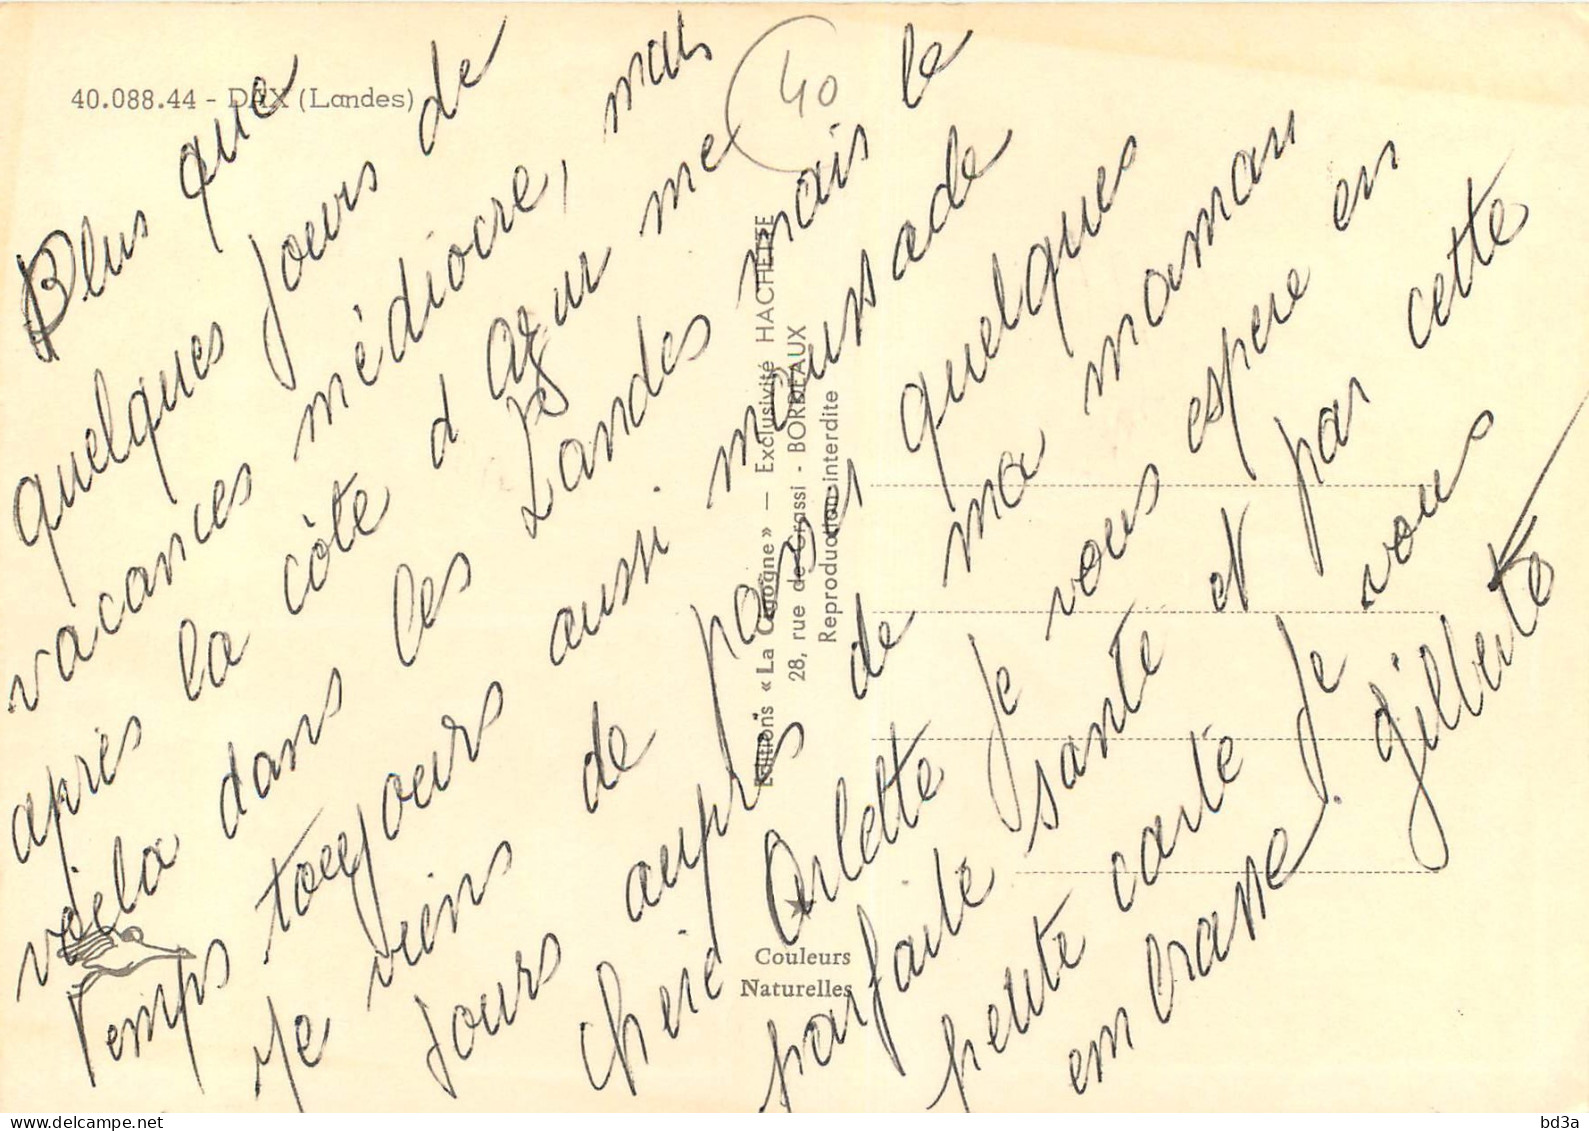 40.088.44 - DAX (Landes)
40
Plus que
quelques jours de
vacances médiocre, mais
après la côte d azur me
voila dans les Landes mais le
Temps toujours aussi moussade
Je viens de passer quelques
jours auprès de ma maman
cherie Arlette je vous espere en
parfaite santé et par cette
petite carte je vous
embrasse. Gilberte
Editions « La Cigogne » — Exclusivité HACHETTE
28, rue de Grassi - BORDEAUX
Reproduction interdite
Couleurs
Naturelles
delcampe.net
bd3a